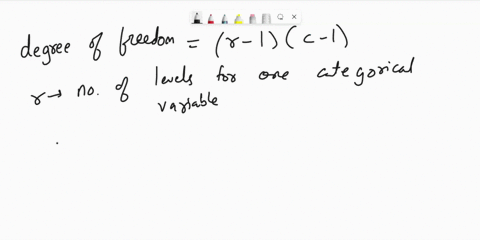 degree of freedom = (r-1) (c-1)
r → no. of levels for one categorical
variable